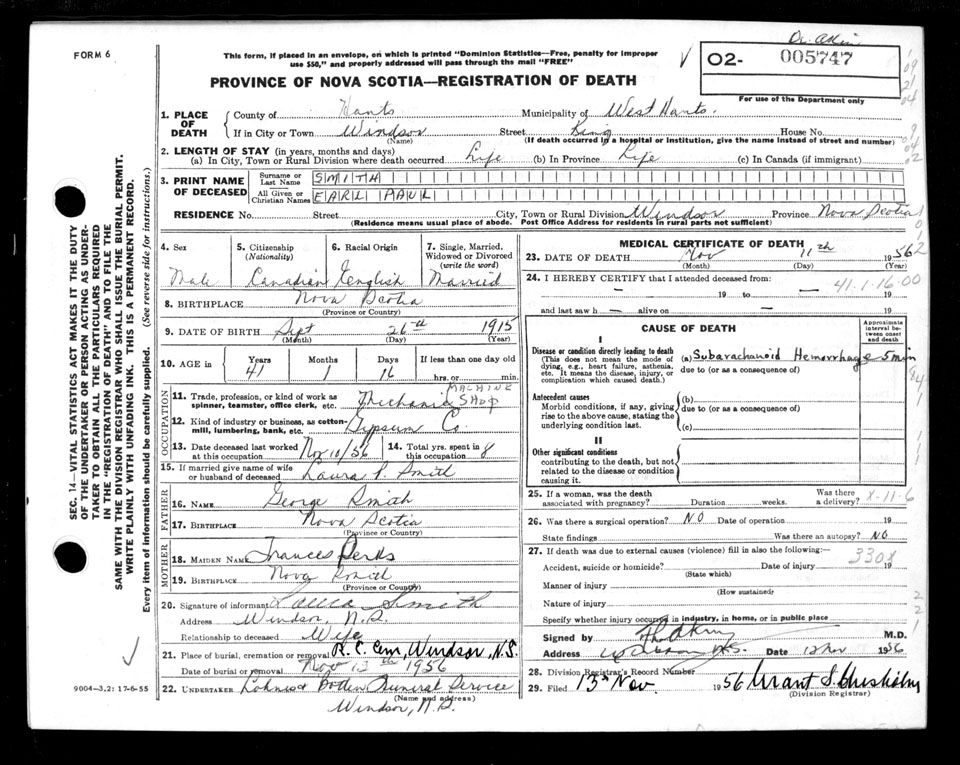 FORM 6
This form, if placed in an envelope, on which is printed "Dominion Statistics—Free, penalty for improper
use $50," and properly addressed will pass through the mail "FREE"
PROVINCE OF NOVA SCOTIA—REGISTRATION OF DEATH
Dr. Akin
02- 005747
For use of the Department only
1. PLACE OF DEATH
County of Hants Municipality of West Hants.
If in City or Town Windsor Street King House No.
(Name) (If death occurred in a hospital or institution, give the name instead of street and number)
2. LENGTH OF STAY (in years, months and days)
(a) In City, Town or Rural Division where death occurred Life (b) In Province Life (c) In Canada (if immigrant)
3. PRINT NAME OF DECEASED
Surname or Last Name SMITH
All Given or Christian Names EARL PAUL
RESIDENCE No. Street City, Town or Rural Division Windsor Province Nova Scotia
(Residence means usual place of abode. Post Office Address for residents in rural parts not sufficient)
4. Sex 5. Citizenship (Nationality) 6. Racial Origin 7. Single, Married, Widowed or Divorced (write the word)
Male Canadian English Married
8. BIRTHPLACE Nova Scotia
(Province or Country)
9. DATE OF BIRTH Sept 26th 1915
(Month) (Day) (Year)
10. AGE in Years Months Days If less than one day old
41 1 16 hrs. or min.
OCCUPATION
11. Trade, profession, or kind of work as spinner, teamster, office clerk, etc. Mechanic MACHINE SHOP
12. Kind of industry or business, as cotton-mill, lumbering, bank, etc. Gypsum Co.
13. Date deceased last worked at this occupation Nov 10/56 14. Total yrs. spent in this occupation 8
15. If married give name of wife or husband of deceased Laura P. Smith
FATHER
16. NAME George Smith
17. BIRTHPLACE Nova Scotia
(Province or Country)
MOTHER
18. MAIDEN NAME Frances Perks
19. BIRTHPLACE Nova Smith
(Province or Country)
20. Signature of informant Laura Smith
Address Windsor, N.S.
Relationship to deceased Wife
21. Place of burial, cremation or removal R. C. Cem, Windsor, N.S.
Date of burial or removal Nov 13th 1956
22. UNDERTAKER Lohnes & Boden Funeral Service
(Name and address)
Windsor, N.S.
9004—3.2: 17-6-55
MEDICAL CERTIFICATE OF DEATH
23. DATE OF DEATH Nov 11th 1956
(Month) (Day) (Year)
24. I HEREBY CERTIFY that I attended deceased from:
41-1-16-00
19 to 19
and last saw h alive on 19
CAUSE OF DEATH
Approximate interval between onset and death
I
Disease or condition directly leading to death
(This does not mean the mode of dying, e.g., heart failure, asthenia, etc. It means the disease, injury, or complication which caused death.)
(a) Subarachanoid Hemorrhage 5 min
due to (or as a consequence of)
Antecedent causes
Morbid conditions, if any, giving rise to the above cause, stating the underlying condition last.
(b)
due to (or as a consequence of)
(c)
II
Other significant conditions
contributing to the death, but not related to the disease or condition causing it.
25. If a woman, was the death associated with pregnancy? Duration weeks. Was there a delivery? X-11-6
26. Was there a surgical operation? NO Date of operation 19
State findings Was there an autopsy? NO
27. If death was due to external causes (violence) fill in also the following:—
330X
Accident, suicide or homicide? Date of injury 19
(State which)
Manner of injury
(How sustained)
Nature of injury
Specify whether injury occurred in industry, in home, or in public place
Signed by M.D.
Address Windsor N.S. Date 12 Nov 1956
28. Division Registrar's Record Number
29. Filed 13th Nov. 1956 Grant S. Chisholm
(Division Registrar)
SEC. 14—VITAL STATISTICS ACT MAKES IT THE DUTY
OF THE UNDERTAKER OR PERSON ACTING AS UNDER-
TAKER TO OBTAIN ALL THE PARTICULARS REQUIRED
IN THE "REGISTRATION OF DEATH" AND TO FILE THE
SAME WITH THE DIVISION REGISTRAR WHO SHALL ISSUE THE BURIAL PERMIT.
WRITE PLAINLY WITH UNFADING INK. THIS IS A PERMANENT RECORD.
Every item of information should be carefully supplied. (See reverse side for instructions.)